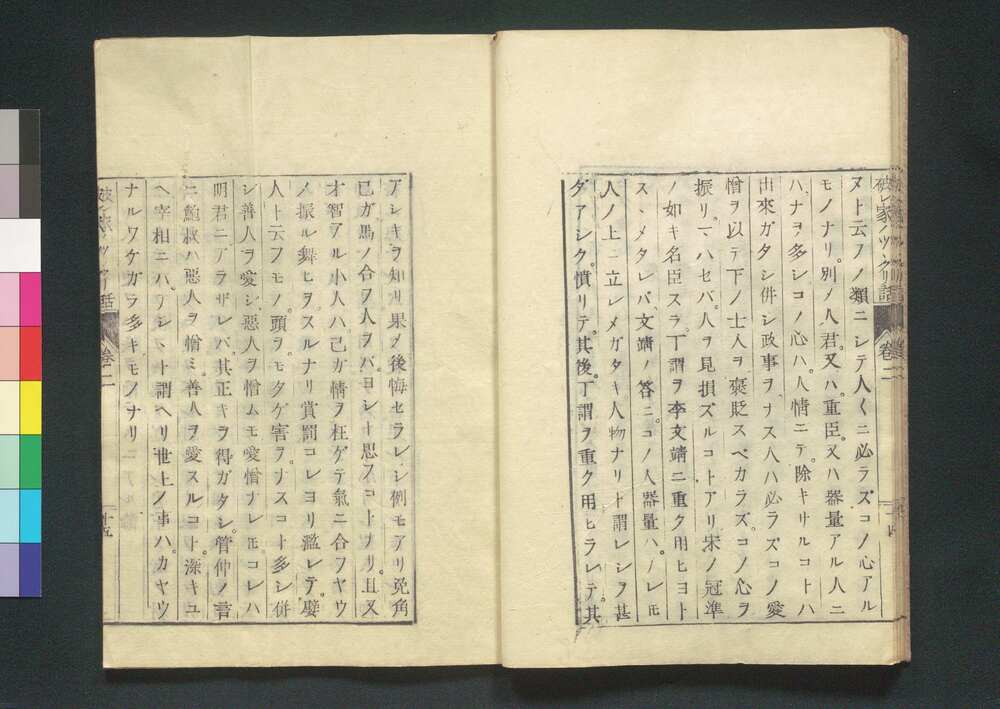 破レ家ノツヾクリ話
卷二
ヌト云フノ類ニシテ人々ニ必ラズコノ心アル
モノナリ。別ノ人君。又ハ。重臣。又ハ器量アル人ニ
ハ。ナヲ多シコノ心ハ。人情ニテ。除キサルコトハ
出來ガタシ併シ政事ヲナス人ハ必ラズコノ愛
憎ヲ以テ下ノ士人ヲ褒貶スベカラズ。コノ心ヲ
振リマハセバ。人ヲ見損ズルコトアリ宋ノ冠準
ノ如キ名臣スラ。丁謂ヲ李文靖ニ重ク用ヒヨト
スヽメタレバ文靖ノ答ニ。コノ人器量ハ。アレモ
人ノ上ニ立レメガタキ人物ナリト謂レシヲ甚
ダアシク。憤リテ。其後。丁謂ヲ重ク用ヒラレテ。其
アシキヲ知リ果グ後悔セラレシ例モアリ兎角
已ガ馬ノ合フ人ヲバ。ヨシト思フコトナリ。且又
才智アル小人ハ。己ガ情ヲ枉ゲテ氣ニ合フヤウ
ノ振ル舞ヒヲ。スルナリ賞罰コレヨリ濫レテ。嬖
人ト云フモノ。頭ヲモタゲ害ヲ。ナスコト多シ併
シ善人ヲ愛シ。惡人ヲ憎ムモ愛憎ナレモ。コレハ
明君ニアラザレバ。其正キヲ得ガタシ。管仲ノ言
ニ鮑叔ハ惡人ヲ憎ミ善人ヲ愛スルコト深キユ
ヘ宰相ニハ。アシヽト謂ヘリ世上ノ事ハ。カヤウ
ナルワケガラ多キモノナリ
卷二
十五